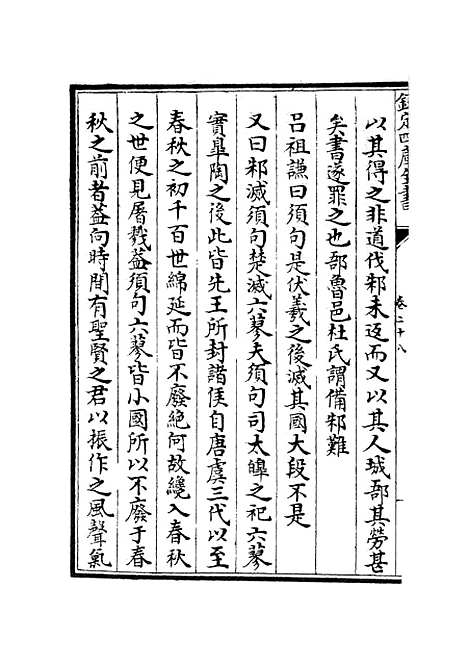 欽定四庫全書
卷二十八
以其得之非道伐邾未返而又以其人城郚其勞甚
矣書遂罪之也郚魯邑杜氏謂備邾難
吕祖謙曰須句是伏羲之後滅其國大段不是
又曰邾滅須句楚滅六蓼夫須句司太皞之祀六蓼
實臯陶之後此皆先王所封諸侯自唐虞三代以至
春秋之初千百世綿延而皆不廢絶何故纔入春秋
之世便見屠戮葢須句六蓼皆小國所以不廢于春
秋之前者葢向時間有聖賢之君以振作之風聲氣